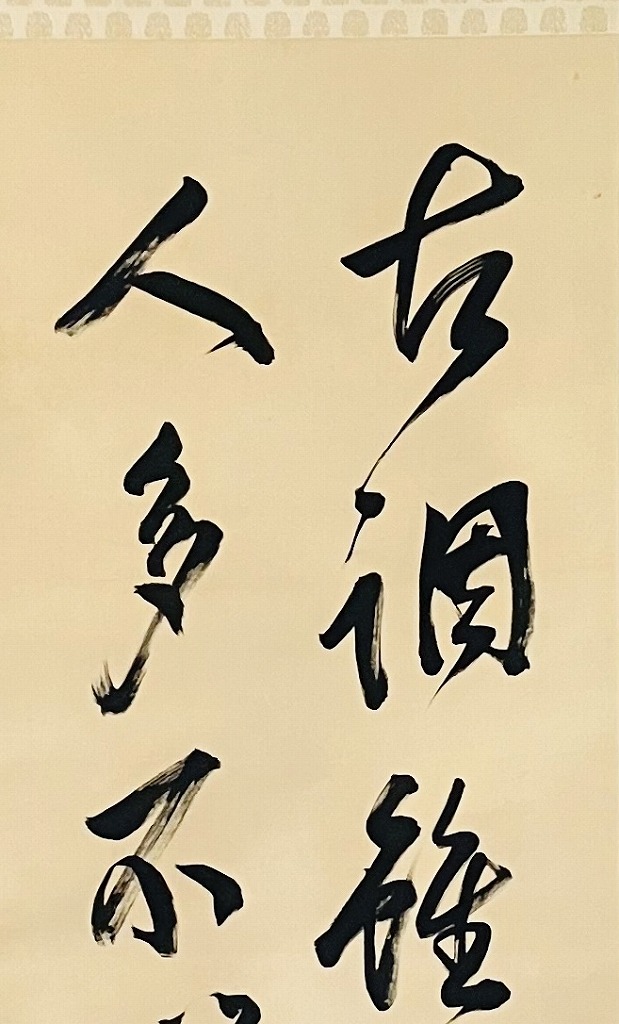 古調雖
人多不